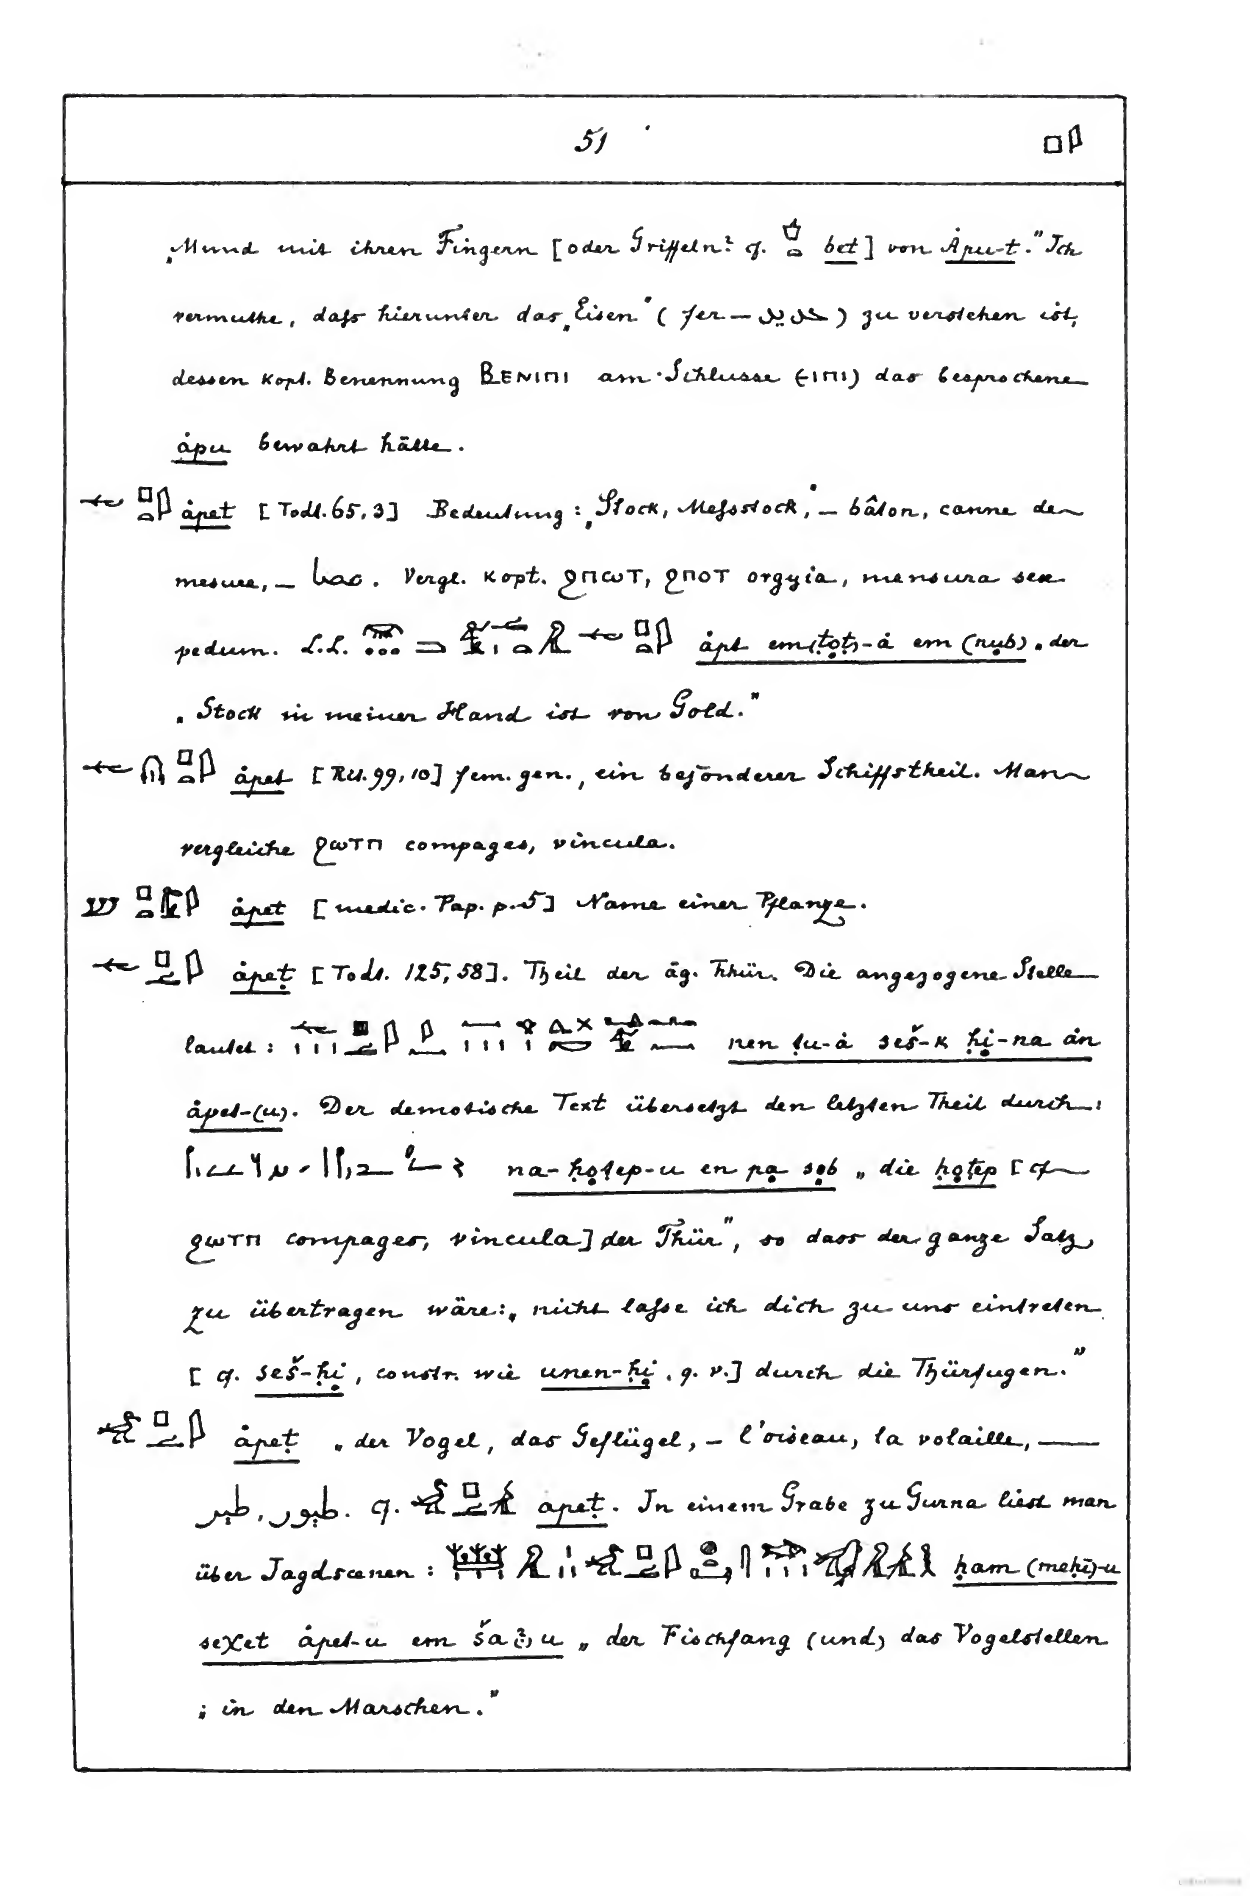 51
„Mund mit ihren Fingern [oder Griffeln? cf. bet] von Ȧpu-t." Ich
vermuthe, daſs hierunter das „Eisen" (fer — حديد) zu verstehen ist,
dessen kopt. Benennung ⲂⲈⲚⲒⲠⲒ am Schlusse (-ⲓⲡⲓ) das besprochene
ȧpu bewahrt hätte.
ȧpet [Todt. 65, 3] Bedeutung: „Stock, Meſsstock", — bâton, canne de
mesure, — . Vergl. kopt. ϩⲡⲱⲧ, ϩⲡⲟⲧ orgyia, mensura sex
pedum. L.L. ȧpt em (ṭoṭ)-ȧ em (nub) „der
„Stock in meiner Hand ist von Gold."
ȧpet [Rit. 99, 10] fem. gen., ein besonderer Schiffstheil. Man
vergleiche ϩⲱⲧⲡ compages, vincula.
ȧpet [medic. Pap. p. 5] Name einer Pflanze.
ȧpeṭ [Todt. 125, 58]. Theil der äg. Thür. Die angezogene Stelle
lautet: nen ṭu-ȧ seš-k ḥi-na ȧn
ȧpet-(u). Der demotische Text übersetzt den letzten Theil durch:
na-ḥoṭep-u en pa sob „die ḥoṭep [cf
ϩⲱⲧⲡ compages, vincula] der Thür", so dass der ganze Satz
zu übertragen wäre: „nicht laſse ich dich zu uns eintreten
[cf. seš-ḥi, constr. wie unen-ḥi, q. v.] durch die Thürfugen."
ȧpeṭ „der Vogel, das Geflügel, — l'oiseau, la volaille, —
طيور, طير. cf. apeṭ. In einem Grabe zu Gurna liest man
über Jagdscenen: ḥam (meḥi)-u
seχet ȧpet-u em „der Fischfang (und) das Vogelstellen
„in den Marschen."